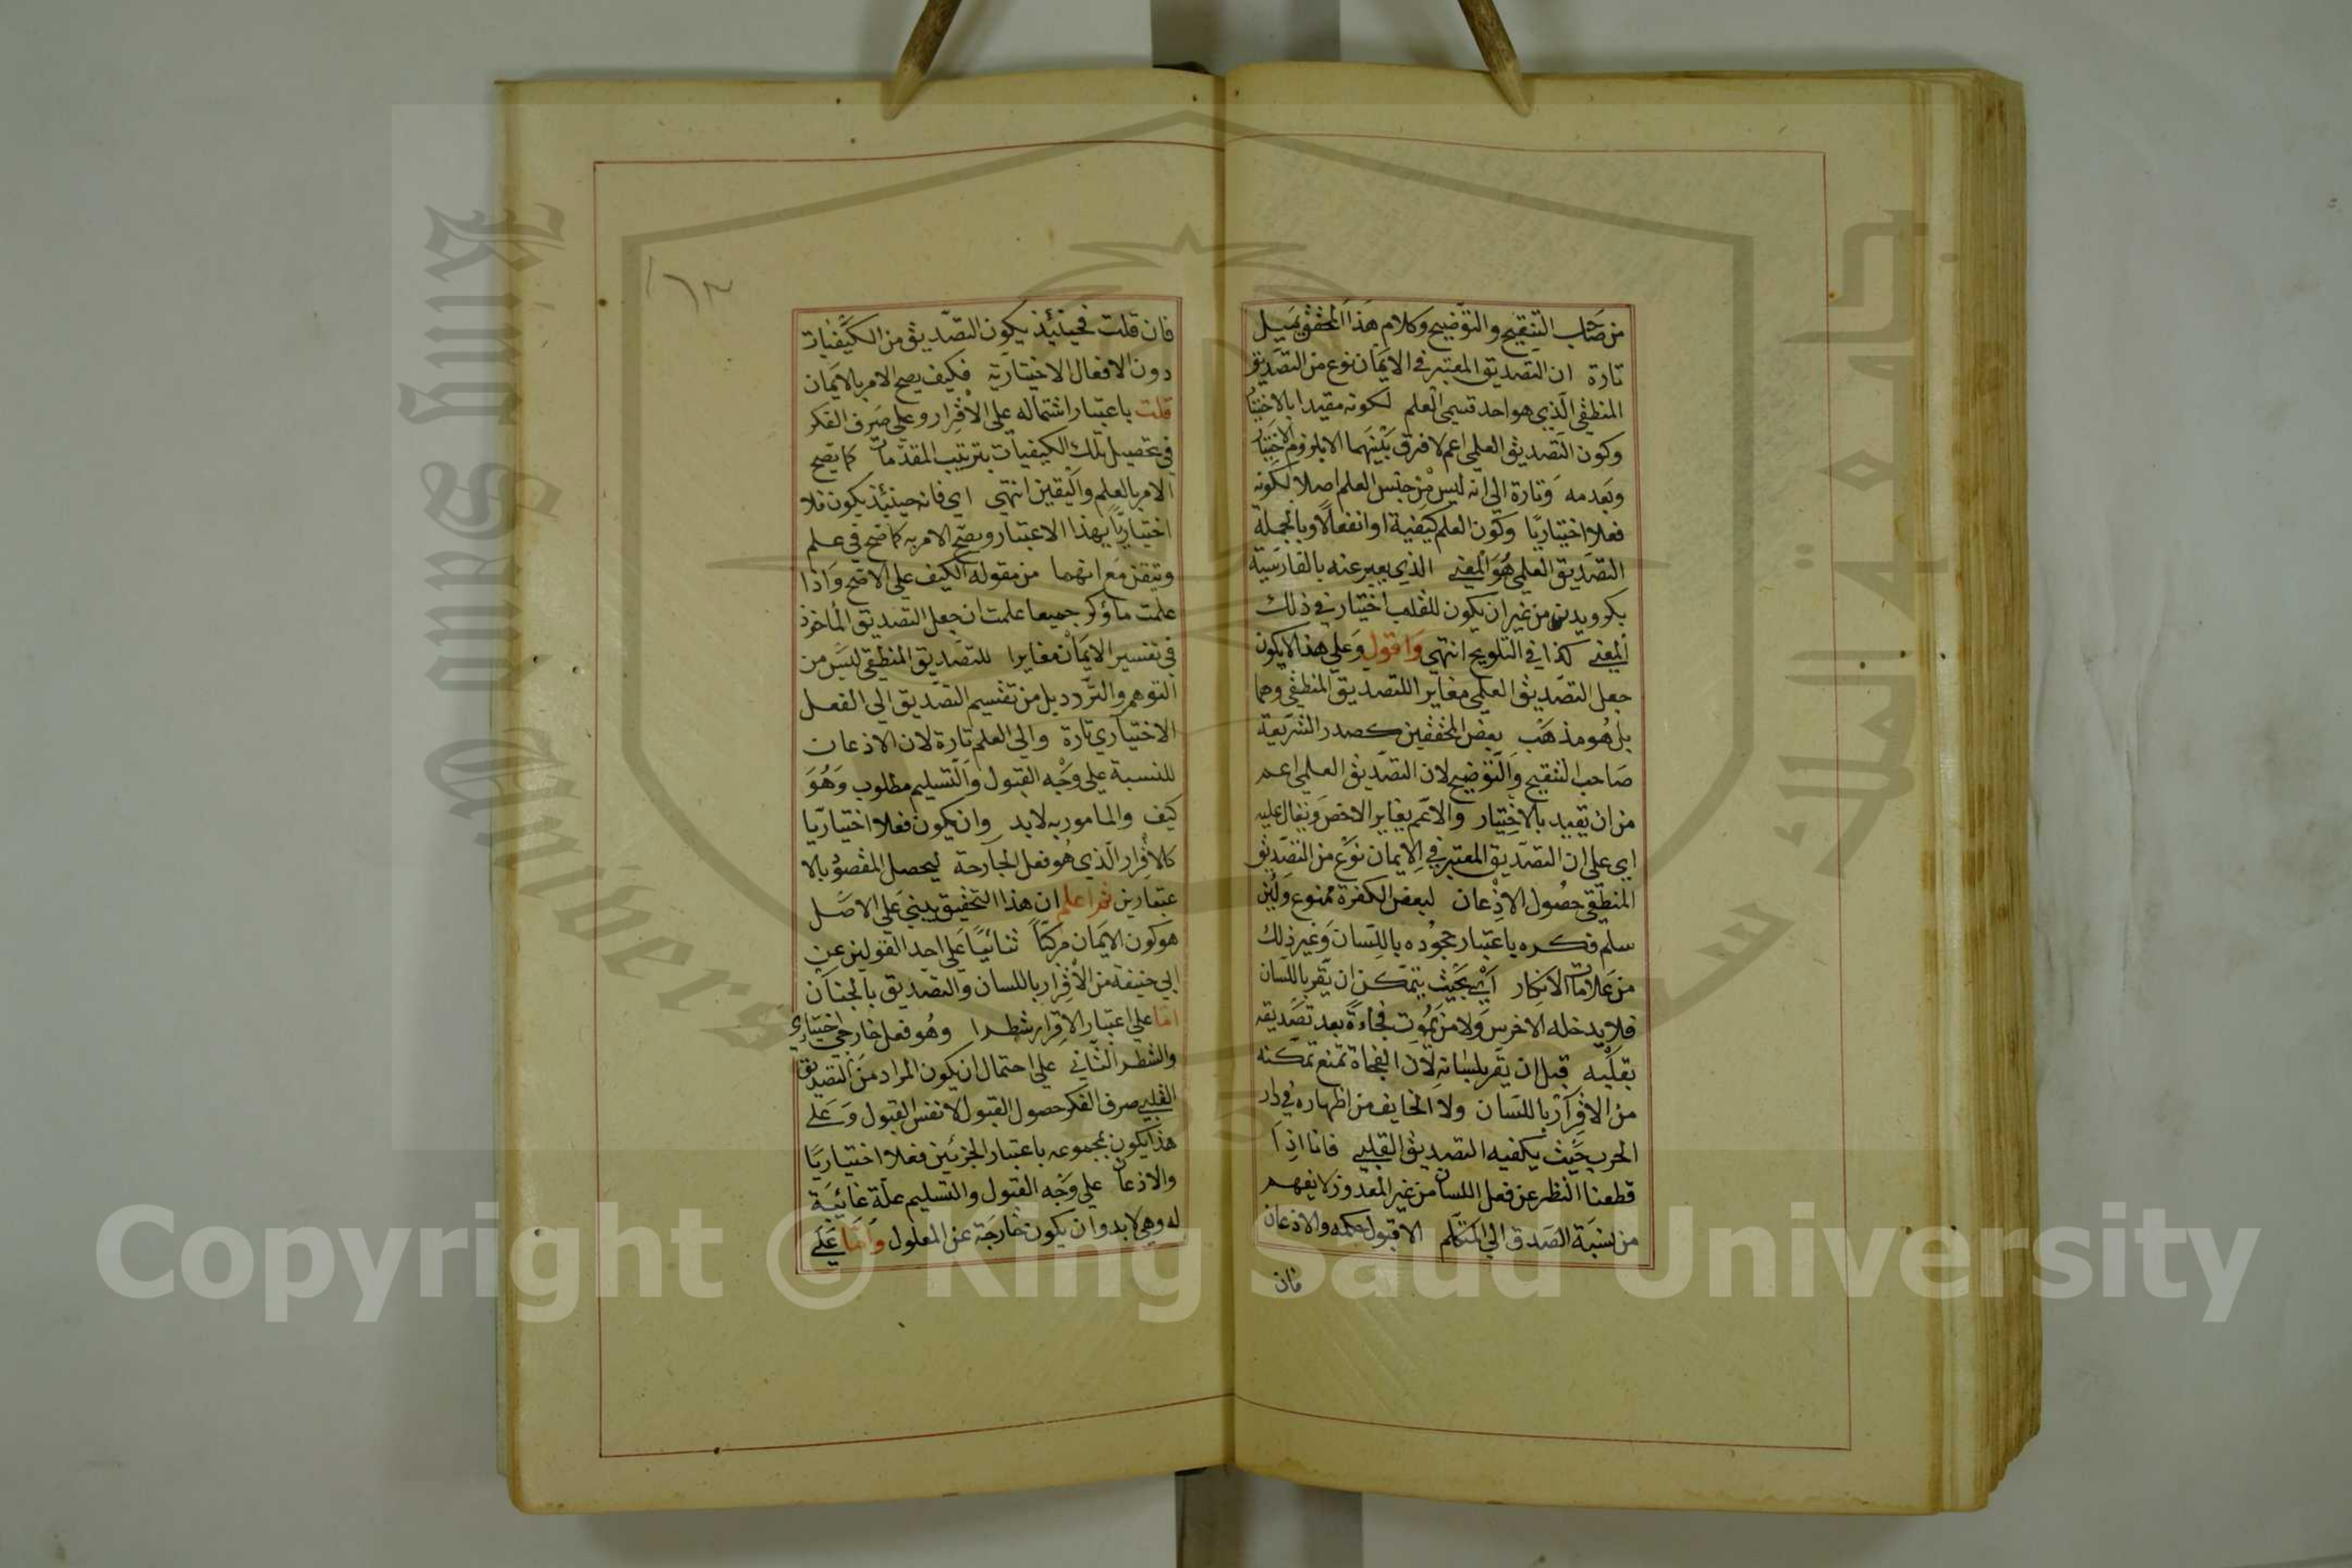 من صاحب التنقيح والتوضيح وكلام هذا المحقق يميل
تارة ان التصديق المعتبر في الايمان نوع من التصديق
المنطقي الذي هو احد قسمي العلم لكونه مقيدا بالاختيار
وكون التصديق العلمي اعم لا فرق بينهما الا بلزوم الاختيار
وبعدمه وتارة الى انه ليس من جنس العلم اصلا لكونه
فعلا اختياريا وكون العلم كيفية او انفعالا وبالجملة
التصديق العلمي هو المعنى الذي يعبر عنه بالفارسية
بكرويدن من غير ان يكون للقلب اختيار في ذلك
المعنى كذا في التلويح انتهى واقول وعلى هذا لا يكون
جعل التصديق العلمي مغايرا للتصديق المنطقي وهما
بل هو مذهب بعض المحققين كصدر الشريعة
صاحب التنقيح والتوضيح لان التصديق العلمي اعم
من ان يقيد بالاختيار والاعم يغاير الاخص ويقال عليه
اي على ان التصديق المعتبر في الايمان نوع من التصديق
المنطقي حصول الاذعان لبعض الكفرة ممنوع ولئن
سلم فكره باعتبار جحوده باللسان وغير ذلك
من علامات الانكار اي بحيث يتمكن ان يقر باللسان
فلا يدخله الاخرس ولا من يموت فجاءة بعد تصديقه
بقلبه قبل ان يقر بلسانه لان الفجاة تمنع تمكنه
من الاقرار باللسان ولا الخايف من اظهاره في دار
الحرب حيث يكفيه التصديق القلبي فانا اذا
قطعنا النظر عن فعل اللسان من غير المعذور لا يفهم
من نسبة الصدق الى المتكلم الا قبول حكمه والاذعان
فان
١٣
فان قلت فحينئذ يكون التصديق من الكيفيات
دون الافعال الاختيارية فكيف يصح الامر بالايمان
قلت باعتبار اشتماله على الاقرار وعلى صرف الفكر
في تحصيل تلك الكيفيات بترتيب المقدمات كما يصح
الامر بالعلم واليقين انتهى اي فانه حينئذ يكون فلا
اختياريا بهذا الاعتبار ويصح الامر به كما صح في علم
وتيقن مع انهما من مقولة الكيف على الاصح واذا
علمت ما ذكر جميعا علمت ان جعل التصديق المأخوذ
في تفسير الايمان مغايرا للتصديق المنطقي ليس من
التوهم والتردد بل من تقسيم التصديق الى الفعل
الاختياري تارة والى العلم تارة لان الاذعان
للنسبة على وجه القبول والتسليم مطلوب وهو
كيف والمامور به لابد وان يكون فعلا اختياريا
كالاقرار الذي هو فعل الجارحة ليحصل المقصود بالا
عتبارين ثم اعلم ان هذا التحقيق يبني على الاصل
هو كون الايمان مركبا ثنائيا على احد القولين عن
ابي حنيفة من الاقرار باللسان والتصديق بالجنان
اما على اعتبار الاقرار شطرا وهو فعل خارجي اختياري
والشطر الثاني على احتمال ان يكون المراد من التصديق
القلبي صرف الفكر حصول القبول لا نفس القبول وعلى
هذا يكون بمجموعه باعتبار الجزئين فعلا اختياريا
والاذعان على وجه القبول والتسليم علة غائية
له وهي لابد وان يكون خارجة عن المعلول واما على
Copyright © King Saud University
King Saud University
جامعة الملك سعود